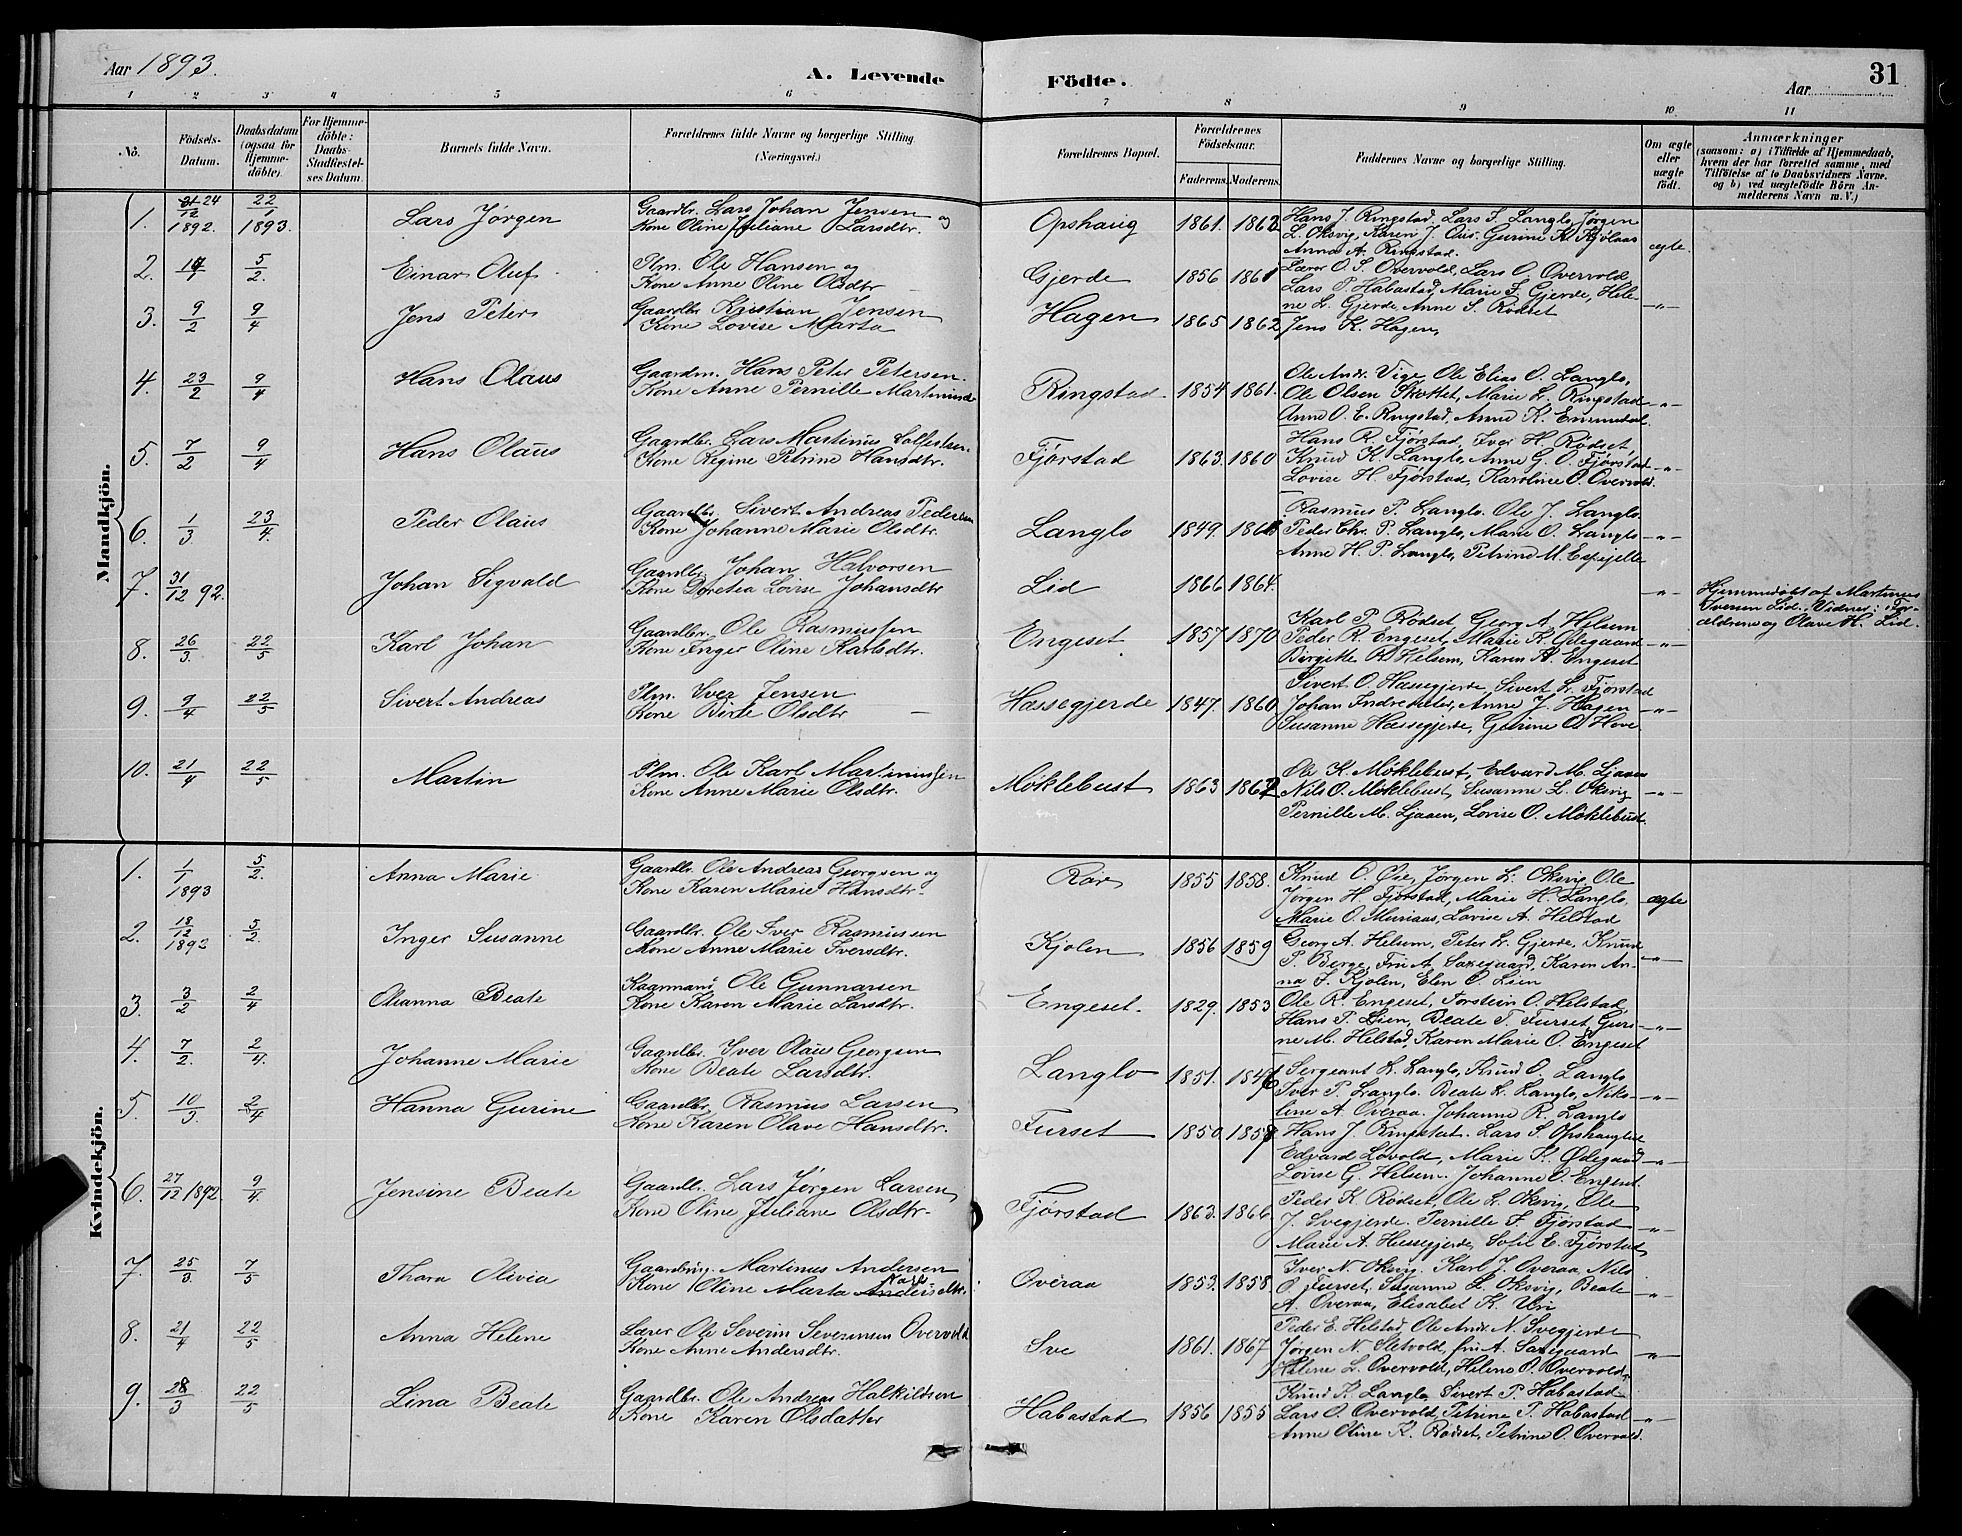 Aar 1893.
A. Levende Födte.
31
Aar
1 2 3 4 5 6 7 8 9 10 11
No.
Födsels-Datum.
Daabsdatum (ogsaa for Hjemme-döbte).
For Hjemme-döbte: Daabs-Stadfæstel-ses Datum.
Barnets fulde Navn.
Forældrenes fulde Navne og borgerlige Stilling (Næringsvei.)
Forældrenes Bopæl.
Forældrenes Födselsaar.
Faderens. Moderens.
Faddernes Navne og borgerlige Stilling.
Om ægte eller uægte födt.
Anmærkninger
(saasom: a) i Tilfælde af Hjemmedaab, hvem der har forrettet samme, med Tilföielse af to Daabsvidners Navne, og b) ved uægtefödte Börn An-melderens Navn m. V.)
Mandkjön.
1. 24/12 1892. 22/1 1893. Lars Jørgen
Gaardbr. Lars Johan Jensen og
Kone Oline Juliane Larsdtr.
Opshaug 1861. 1862
Hans J. Ringstad. Lars S. Langlo, Jørgen
L. Oksvig, Karen J. Aus. Gurine K. Kjølaas
Anna A. Ringstad. ægte.
2. 5/2. Einar Oluf
Plm. Ole Hansen og
Kone Anne Oline Olsdtr
Gjerde 1856 1861
Lærer O. S. Overvold, Lars O. Overvold,
Lars P. Habastad, Marie F. Gjerde, Hele-
ne L. Gjerde, Anne S. Rødset -"-
3. 9/2 9/4 Jens Peter
Gaardbr. Kristian Jensen
Kone Lovise Marta
Hagen 1865 1862
Jens K. Hagen,
4. 23/2 9/4 Hans Olaus
Gaardm. Hans Peter Petersen.
Kone Anne Pernille Martinusd
Ringstad 1854 1861.
Ole Andr. Vige, Ole Elias O. Langlo,
Ole Olsen Skottet, Marie L. Ringstad -"-
Anne O. E. Ringstad, Anne K. Emmedal.
5. 7/2 9/4 Hans Olaus
Gaardbr. Lars Martinus
Kone Regine Petrine Hansdtr.
Fjørstad 1863. 1860
Hans R. Fjørstad, Iver H. Rødset,
Knud K. Langlo, Anne G. O. Fjørstad -"-
Lovise H. Fjørstad, Karoline O. Overvold.
6. 1/3 23/4. Peder Olaus
Gaardbr. Sivert Andreas Pedersen
Kone Johanne Marie Olsdtr.
Langlo 1849.
Rasmus P. Langlo. Ole J. Langlo.
Peder Chr. P. Langlo, Marie O. Langlo -"-
Anne H. P. Langlo, Petrine M.
7. 31/12 92. Johan Sigvald
Gaardbr. Johan Halvorsen
Kone Dortea Lovise Johansdtr
Lid 1866 1864. -"-
Hjemmedøbt af Martinus
Iversen Lid. Vidner: For-
ældrene og Olave H. Lid.
8. 26/3. 22/5 Karl Johan
Gaardbr. Ole Rasmussen
Kone Inger Oline Karlsdtr.
Engeset 1857 1870
Karl P. Rødset Georg A. Helsem
Peder R. Engeset, Marie K. Ødegaard -"-
Birgitte R. Helsem, Karen A. Engeset
9. 9/4 22/5 Sivert Andreas
Plm. Iver Jensen
Kone Birte Olsdtr
Hassegjerde 1847. 1860
Sivert O. Hæssegjerde, Sivert L. Fjørstad
Johan Indresæter, Anne J. Hagen -"-
Susanne Hæssegjerde, Gurine O. Hove
10. 21/4 22/5 Martin
Plm. Ole Karl Martinussen
Kone Anne Marie Olsdtr.
Møklebust 1863 1862
Ole K. Møklebust, Edvard M. Ljaaen
Nils O. Møklebust, Susanne L. Oksvig -"-
Pernille M. Ljaaen, Lovise O. Møklebust.
Kvindekjön.
1. 1/1 1893 5/2. Anna Marie
Gaardbr. Ole Andreas Georgsen og
Kone Karen Marie Hansdtr.
Rør 1855 1858.
Knud O. Øie, Jørgen L. Oksvig, Ole
Jørgen H. Fjørstad, Marie H. Langlo, ægte
Marie O. Lovise A. Helstad
2. 18/12 1893 5/2. Inger Susanne
Gaardbr. Ole Iver Rasmussen
Kone Anne Marie Iversdtr.
Kjølen 1856 1859
Georg A. Helsem, Peter L. Gjerde, Knud
P. Berge, Fru A. Saxegaard, Karen An- -"-
na I. Kjølen, Elen O. Lien
3. 3/2 2/4 Olianna Beate
Kaarmand Ole Gunnarsen
Kone Karen Marie Larsdtr.
Engeset. 1829. 1853
Ole R. Engeset, Torstein O. Helstad,
Hans P. Lien, Beate T. Furset, Guri- -"-
ne M. Helstad, Karen Marie O. Engeset
4. 7/2. 2/4. Johanne Marie
Gaardbr. Iver Olaus Georgsen
Kone Beate Larsdtr.
Langlo 1851. 1846
Sergeant L. Langlo, Knud O. Langlo
Iver P. Langlo. Beate L. Langlo, Niko- -"-
line A. Overaa. Johanne R. Langlo
5. 10/3. 2/4 Hanna Gurine
Gaardbr. Rasmus Larsen
Kone Karen Olave Hansdtr.
Furset 1850.
Hans J. Ringstad. Lars S. Opshaug
Edvard Løvold, Marie K. Ødegaard -"-
Lovise G. Helsem. Johanne O. Engeset.
6. 27/12 1892. 9/4. Jensine Beate
Gaardbr. Lars Jørgen Larsen
Kone Oline Juliane Olsdtr.
Fjørstad 1863. 1866.
Peder K. Rødset, Ole L. Oksvig, Ole
J. Svegjerde. Pernille F. Fjørstad -"-
Marie A. Hæssegjerde, Sofie E. Fjørstad
7. 25/3. 7/5 Thora Olivia
Gaardbrug. Martinus Andersen
Kone Oline Marta Andersdtr.
Overaa 1853. 1858.
Iver N. Oksvig. Karl J. Overaa, Nils
O. Furset, Susanne L. Oksvig, Beate -"-
A. Overaa, Elisabet K. Uri
8. 21/4 22/5 Anna Helene
Lærer Ole Severin Severinsen Overvold
Kone Anne Andersdtr.
Sve 1861. 1867
Peder E. Helstad, Ole Andr. N. Svegjerde
Jørgen N. Sletvold, fru A. Saxegaard -"-
Helene L. Overvold, Helene O. Overvold.
9. 28/3 22/5 Lina Beate
Gaardbr. Ole Andreas Halkildsen
Kone Karen Olsdatter
Habastad 1856 1855
Knud K. Langlo, Sivert P. Habastad
Lars O. Overvold, Petrine P. Habastad -"-
Anne Oline K. Rødset, Petrine O. Overvold.